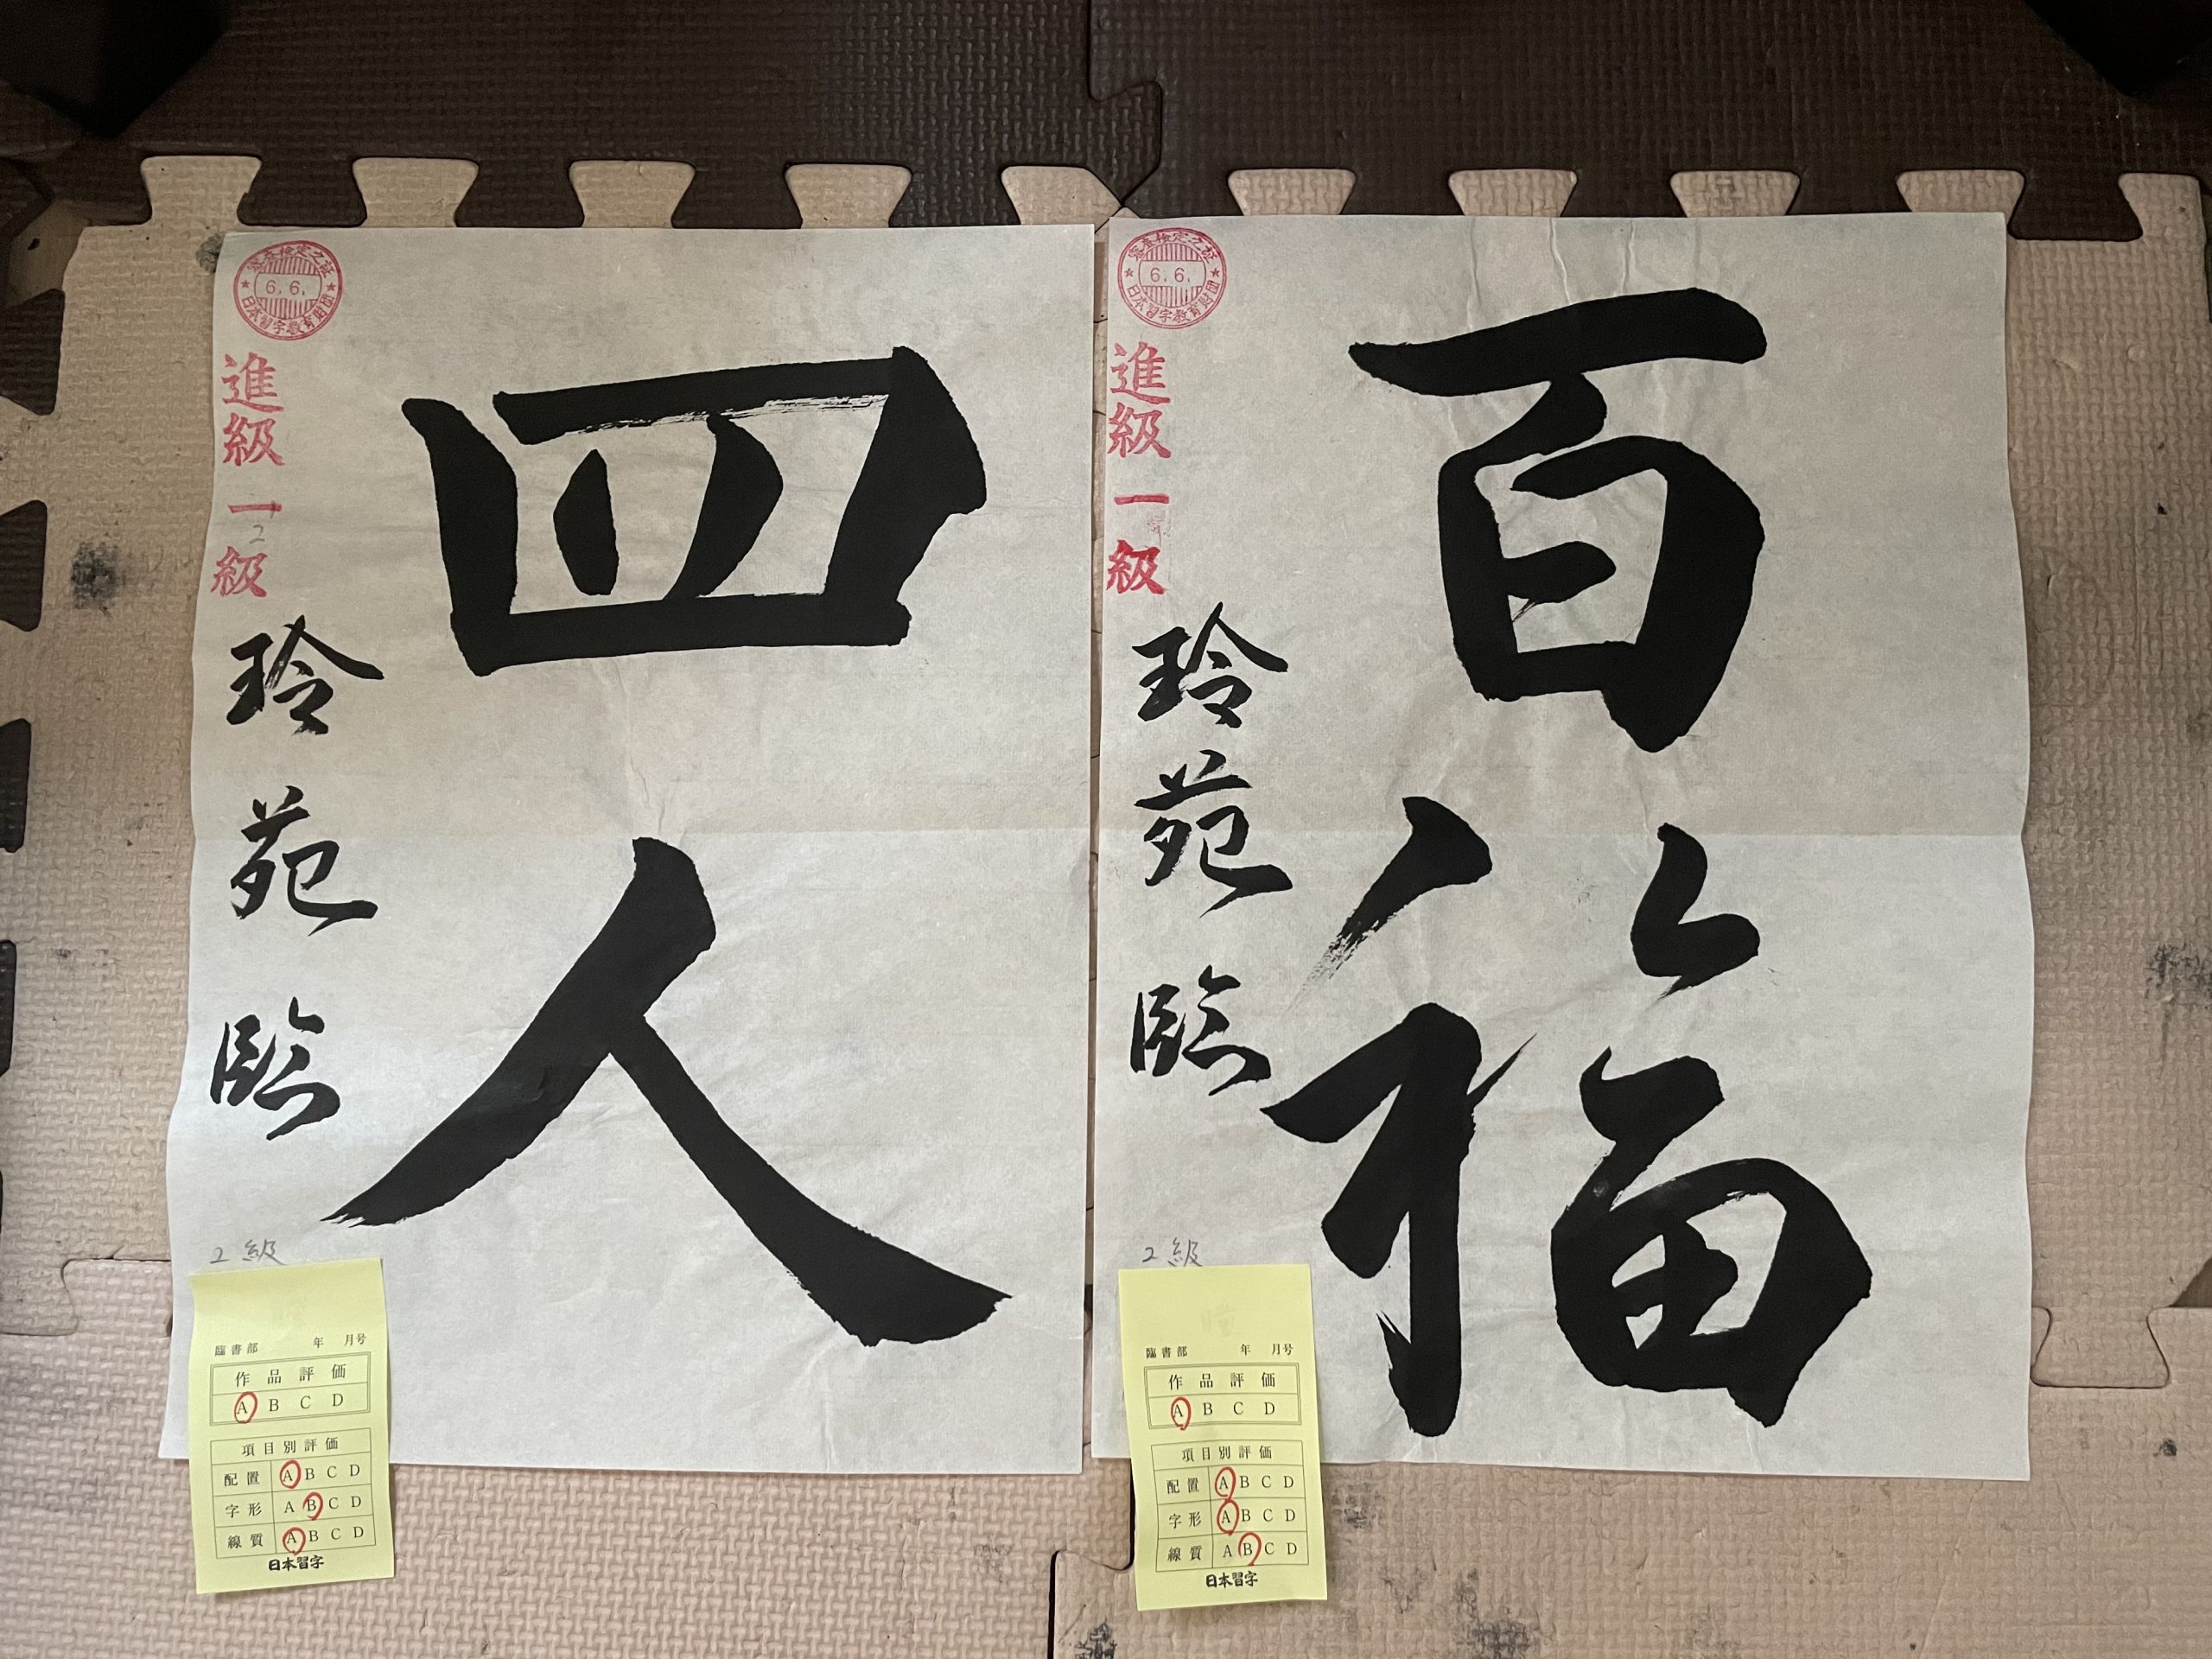 審査検定之証
6.6.
日本習字教育財団
進級一級
2
四人
玲苑臨
2級
臨書部 年 月号
作品評価
A B C D
項目別評価
配置 A B C D
字形 A B C D
線質 A B C D
日本習字
審査検定之証
6.6.
日本習字教育財団
進級一級
百福
玲苑臨
2級
臨書部 年 月号
作品評価
A B C D
項目別評価
配置 A B C D
字形 A B C D
線質 A B C D
日本習字